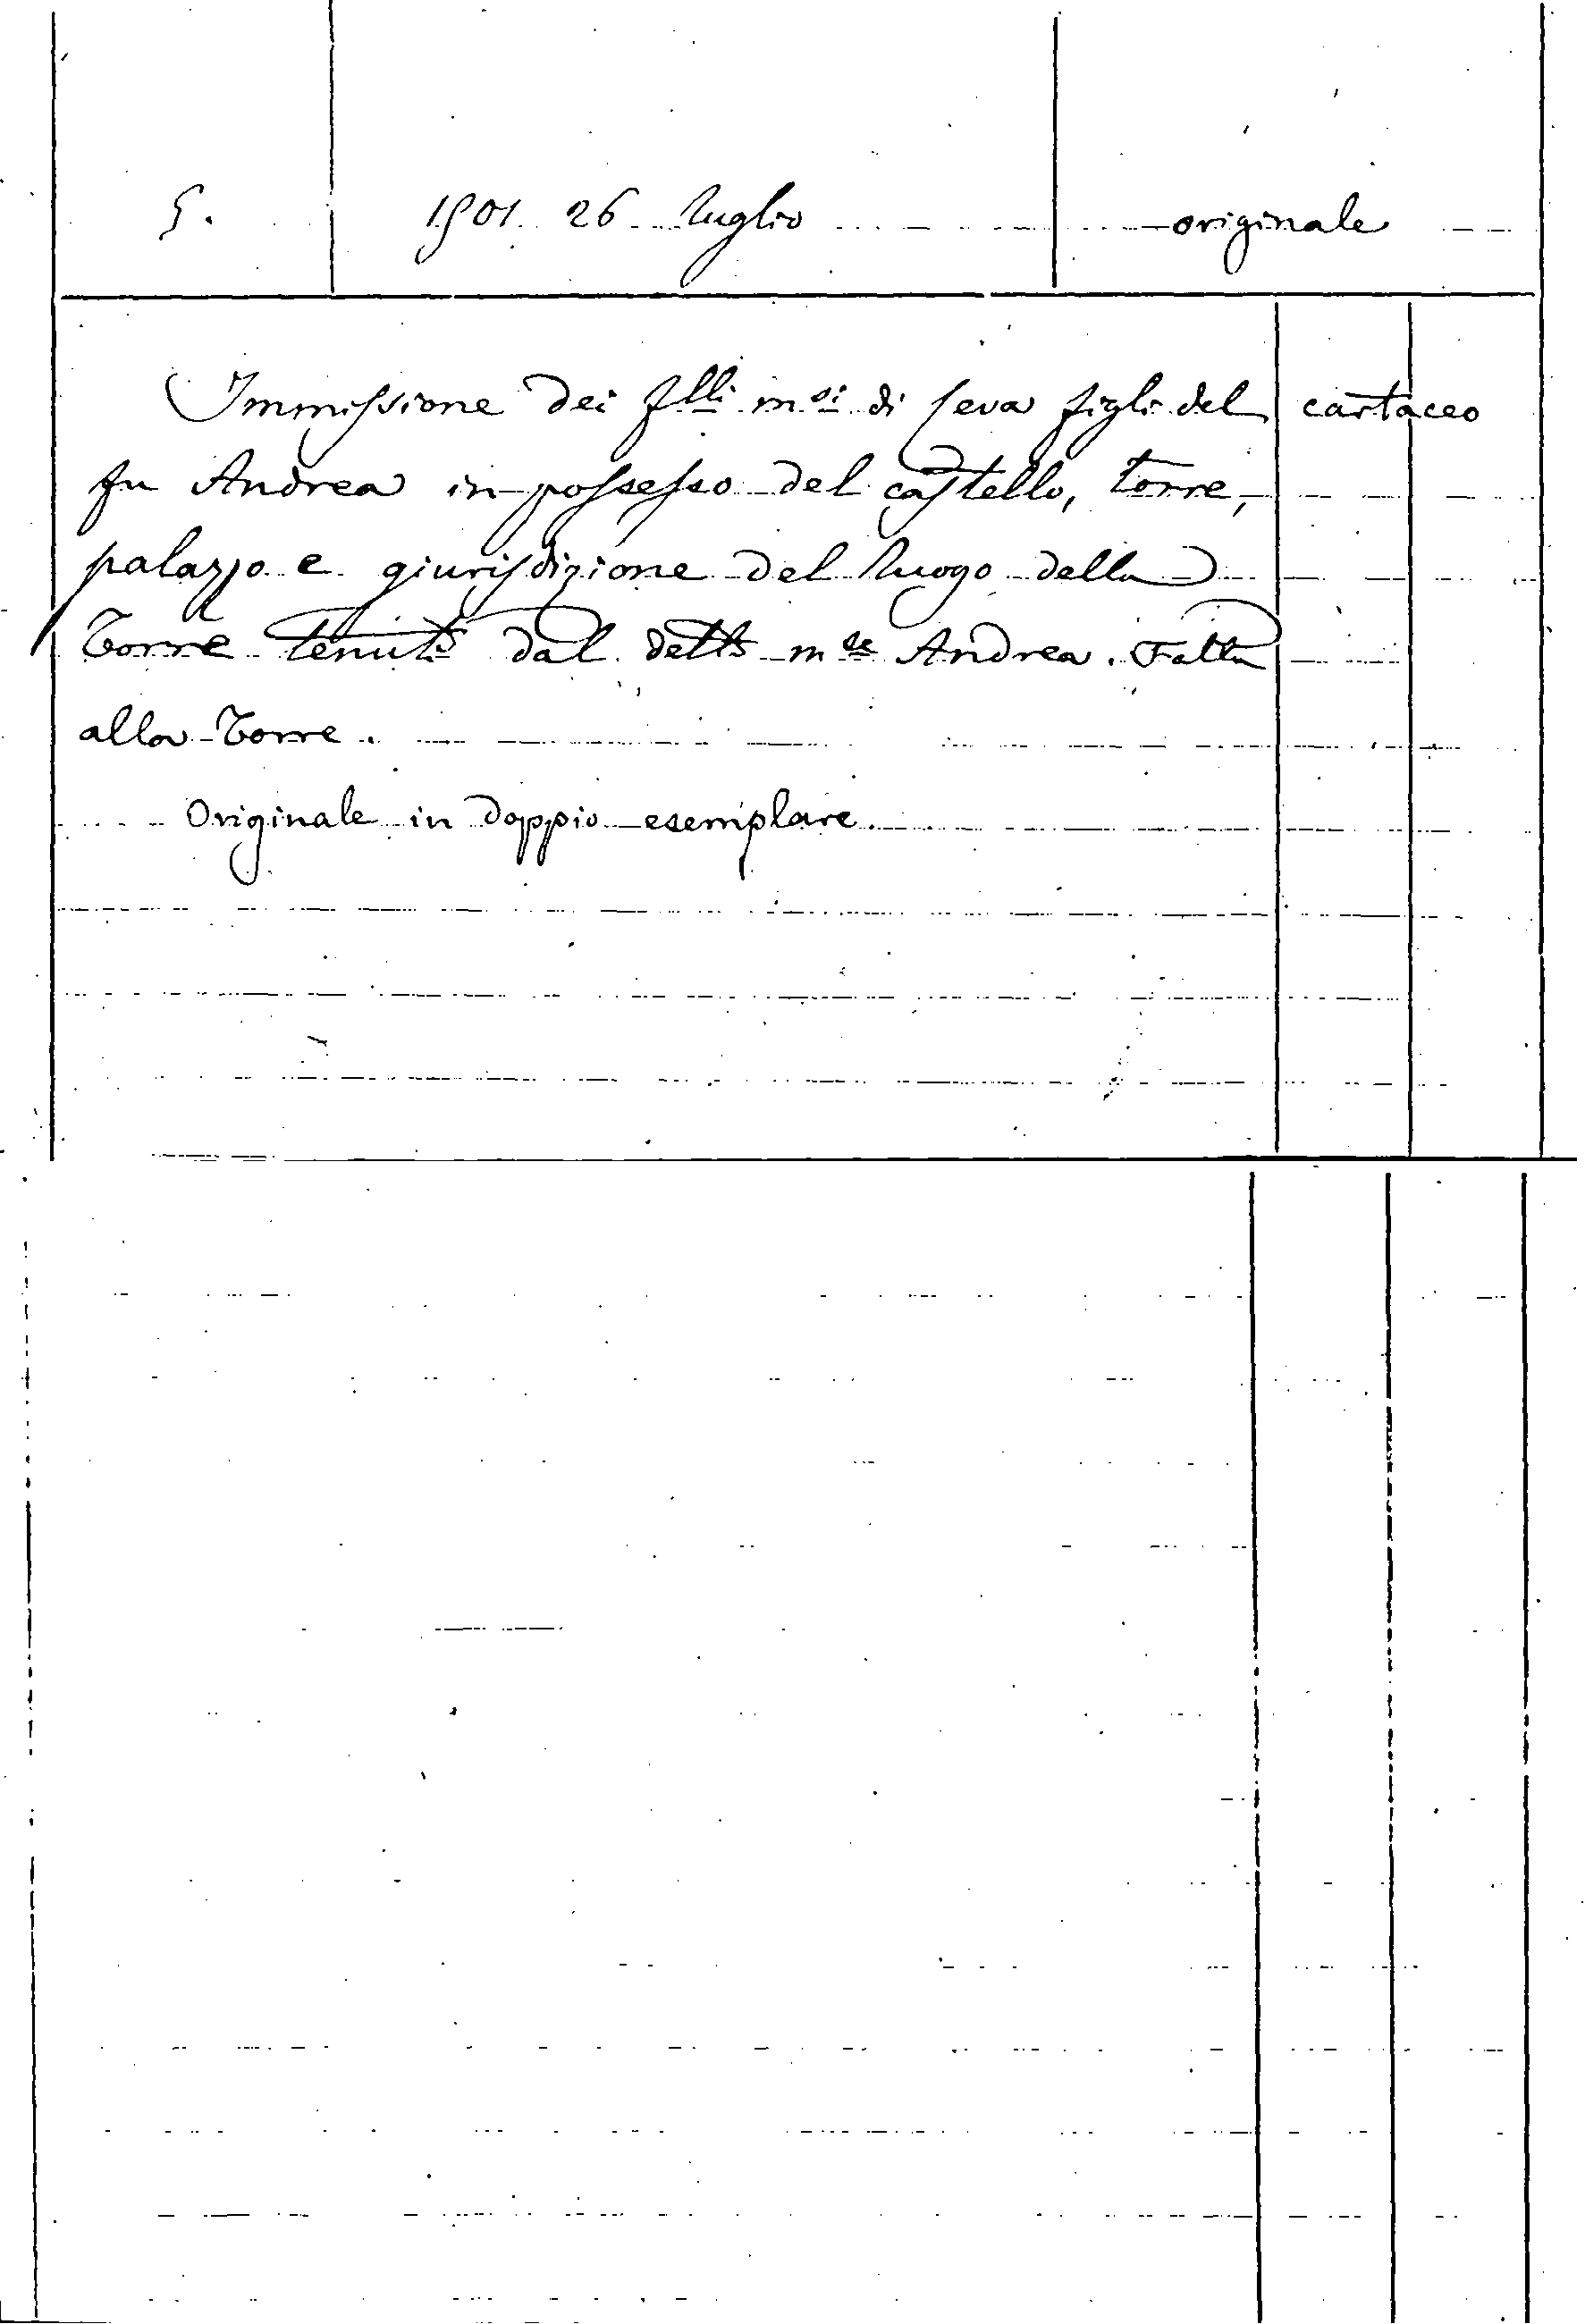 5. 1501 26 luglio originale
Immissione dei flli msi di Ceva figli del cartaceo
fu Andrea in possesso del castello, torre,
palazzo e giurisdizione del luogo della
Torre tenuto dal detto mse Andrea. Fatta
alla Torre.
Originale in doppio esemplare.